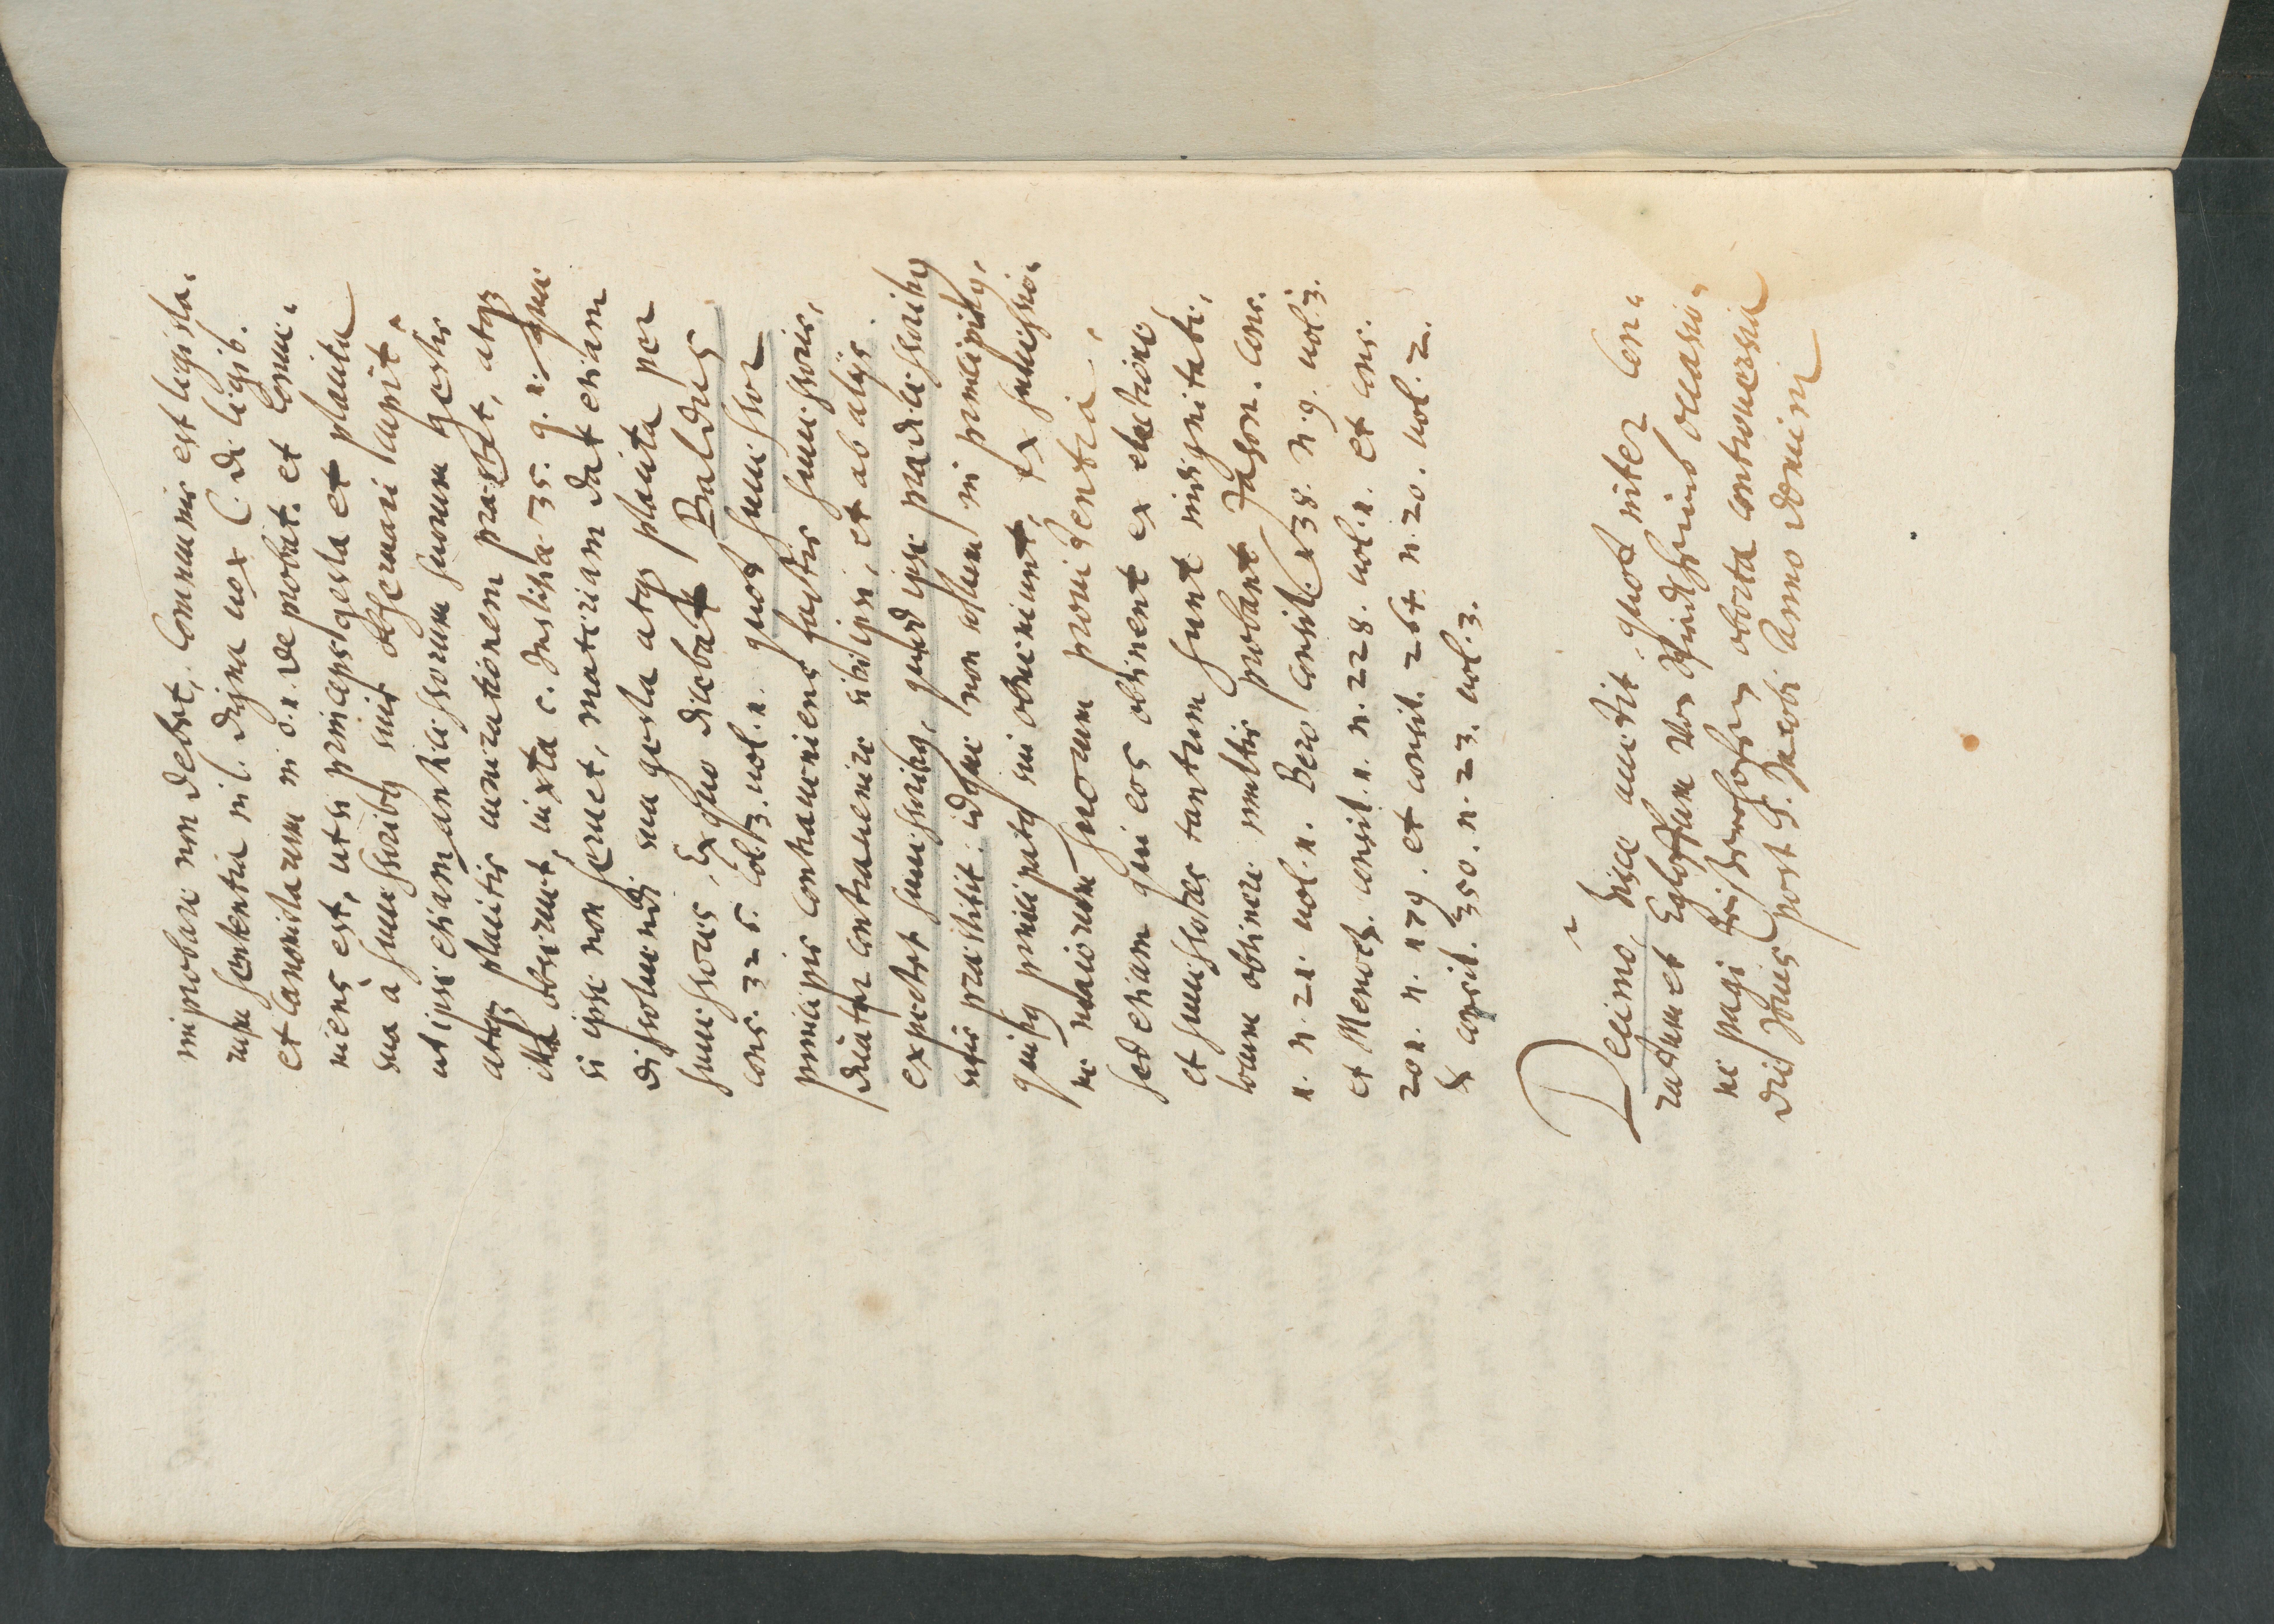 improbare non debet, Communis est legista„
rum sententia in l. digna uox C. de legib.
et Canonistarum in c. 1. de probat. et conue„
niens est, ut si princeps gesta et placita
sua à successoribus suis obseruari cupit,
ut ipse etiam antecessorum suorum gestis
atque placitis uenerationem praestet, atque
illa obseruet, iuxta c. Iustitia 35. q. 1. Qui
si ipse non seruet, materiam dat etiam
dissoluendi sua gesta atque placita per
successores, Ex quo dicebat Baldus
cons. 326. col. 3. uol. 1. quod successor
principis contraueniens factis successoris,
uidetur contrauenire sibi ipsi, et ab alijs
expectet successoribus, quod ipse praedecessoribus
suis praestitit: idque non solum in principibus,
quibus principatus sui obueniunt, ex successio„
ne maiorum suorum prouidentia,
sed etiam qui eos obtinent ex electione
et successores tantum sunt in dignitate,
locum obtinere multis probant Jason. cons.
1. n. 21. uol. 1. Bero consil. 138. n. 9. uol. 3.
et Menoch. consil. 1. n. 228. uol. 1. et cons.
201. n. 179. et consil. 264. n. 20. uol. 2.
& consil. 350. n. 23. uol. 3.
Decimò, hisce accedit, quod inter Con„
radum et Eglossum Vos occasio„
ne pagi oborta controuersia
die Jouis post S. Jacobi Anno domini